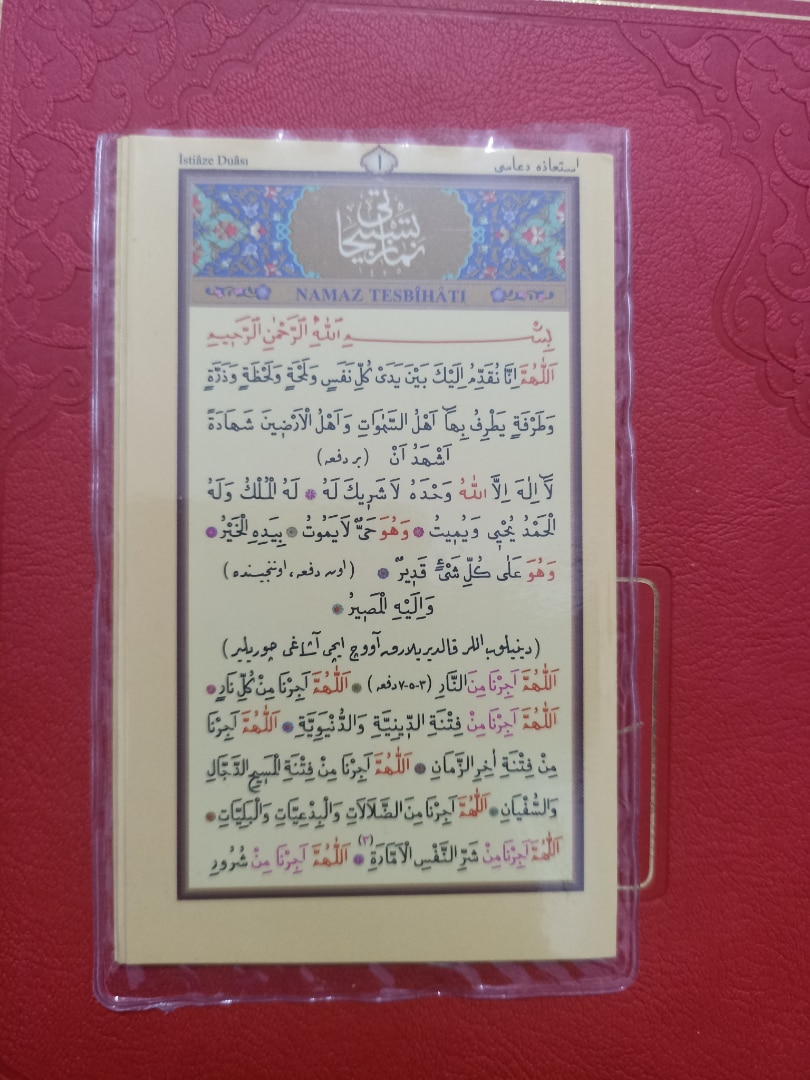 İstiâze Duâsı ١ استعاذه دعاسی
نماز تسبیحاتی
NAMAZ TESBÎHÂTI
بِسْــــمِ اللّٰهِ الرَّحْمٰنِ الرَّحِيمِ
اَللّٰهُمَّ اِنَّا نُقَدِّمُ اِلَيْكَ بَيْنَ يَدَىْ كُلِّ نَفَسٍ وَلَمْحَةٍ وَلَحْظَةٍ وَذَرَّةٍ
وَطَرْفَةٍ يَطْرِفُ بِهَا اَهْلُ السَّمٰوَاتِ وَاَهْلُ الْاَرْضِينَ شَهَادَةً
اَشْهَدُ اَنْ (بر دفعه)
لَا اِلٰهَ اِلَّا اللّٰهُ وَحْدَهُ لَا شَرِيكَ لَهُ لَهُ الْمُلْكُ وَلَهُ
الْحَمْدُ يُحْيِى وَيُمِيتُ وَهُوَ حَىٌّ لَا يَمُوتُ بِيَدِهِ الْخَيْرُ
وَهُوَ عَلٰى كُلِّ شَىْءٍ قَدِيرٌ (اون دفعه، اوننجیسنده)
وَاِلَيْهِ الْمَصِيرُ
(دینیلوب اللر قالدیریلارق آووچ ایچی آشاغی چوریلیر)
اَللّٰهُمَّ اَجِرْنَا مِنَ النَّارِ (٣-٥-٧ دفعه) اَللّٰهُمَّ اَجِرْنَا مِنْ كُلِّ نَارٍ
اَللّٰهُمَّ اَجِرْنَا مِنْ فِتْنَةِ الدِّينِيَّةِ وَالدُّنْيَوِيَّةِ اَللّٰهُمَّ اَجِرْنَا
مِنْ فِتْنَةِ اٰخِرِ الزَّمَانِ اَللّٰهُمَّ اَجِرْنَا مِنْ فِتْنَةِ الْمَسِيحِ الدَّجَّالِ
وَالسُّفْيَانِ اَللّٰهُمَّ اَجِرْنَا مِنَ الضَّلَالَاتِ وَالْبِدْعِيَّاتِ وَالْبَلِيَّاتِ
اَللّٰهُمَّ اَجِرْنَا مِنْ شَرِّ النَّفْسِ الْاَمَّارَةِ (٣) اَللّٰهُمَّ اَجِرْنَا مِنْ شُرُورِ